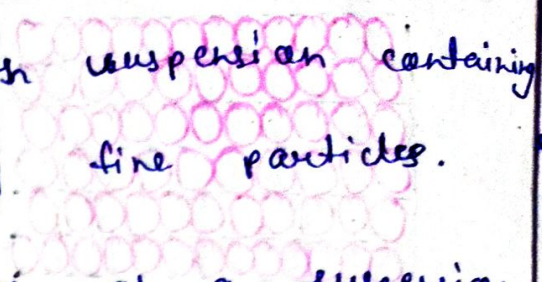 suspension containing
fine particles.